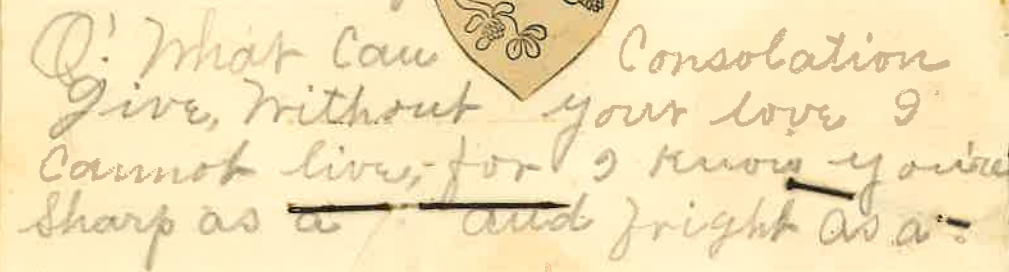 O! What can Consolation
give, Without your love I
Cannot live, for I know you're
Sharp as a and bright as a